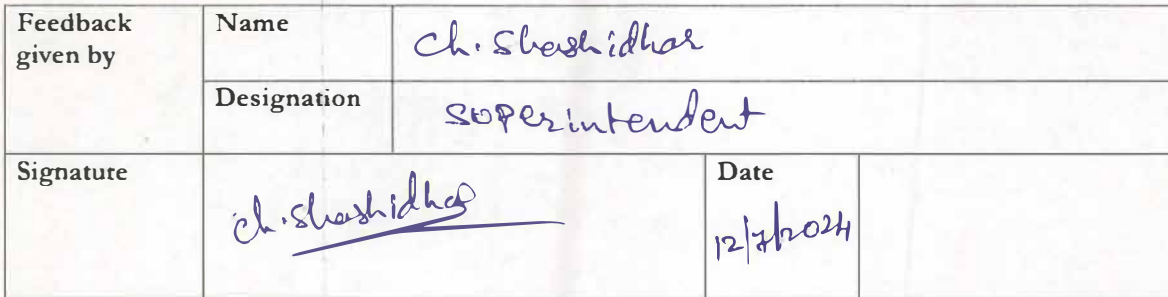 Feedback given by
Name
Ch. Shashidhar
Designation
Superintendent
Signature
Ch. Shashidhar
Date
12/7/2024